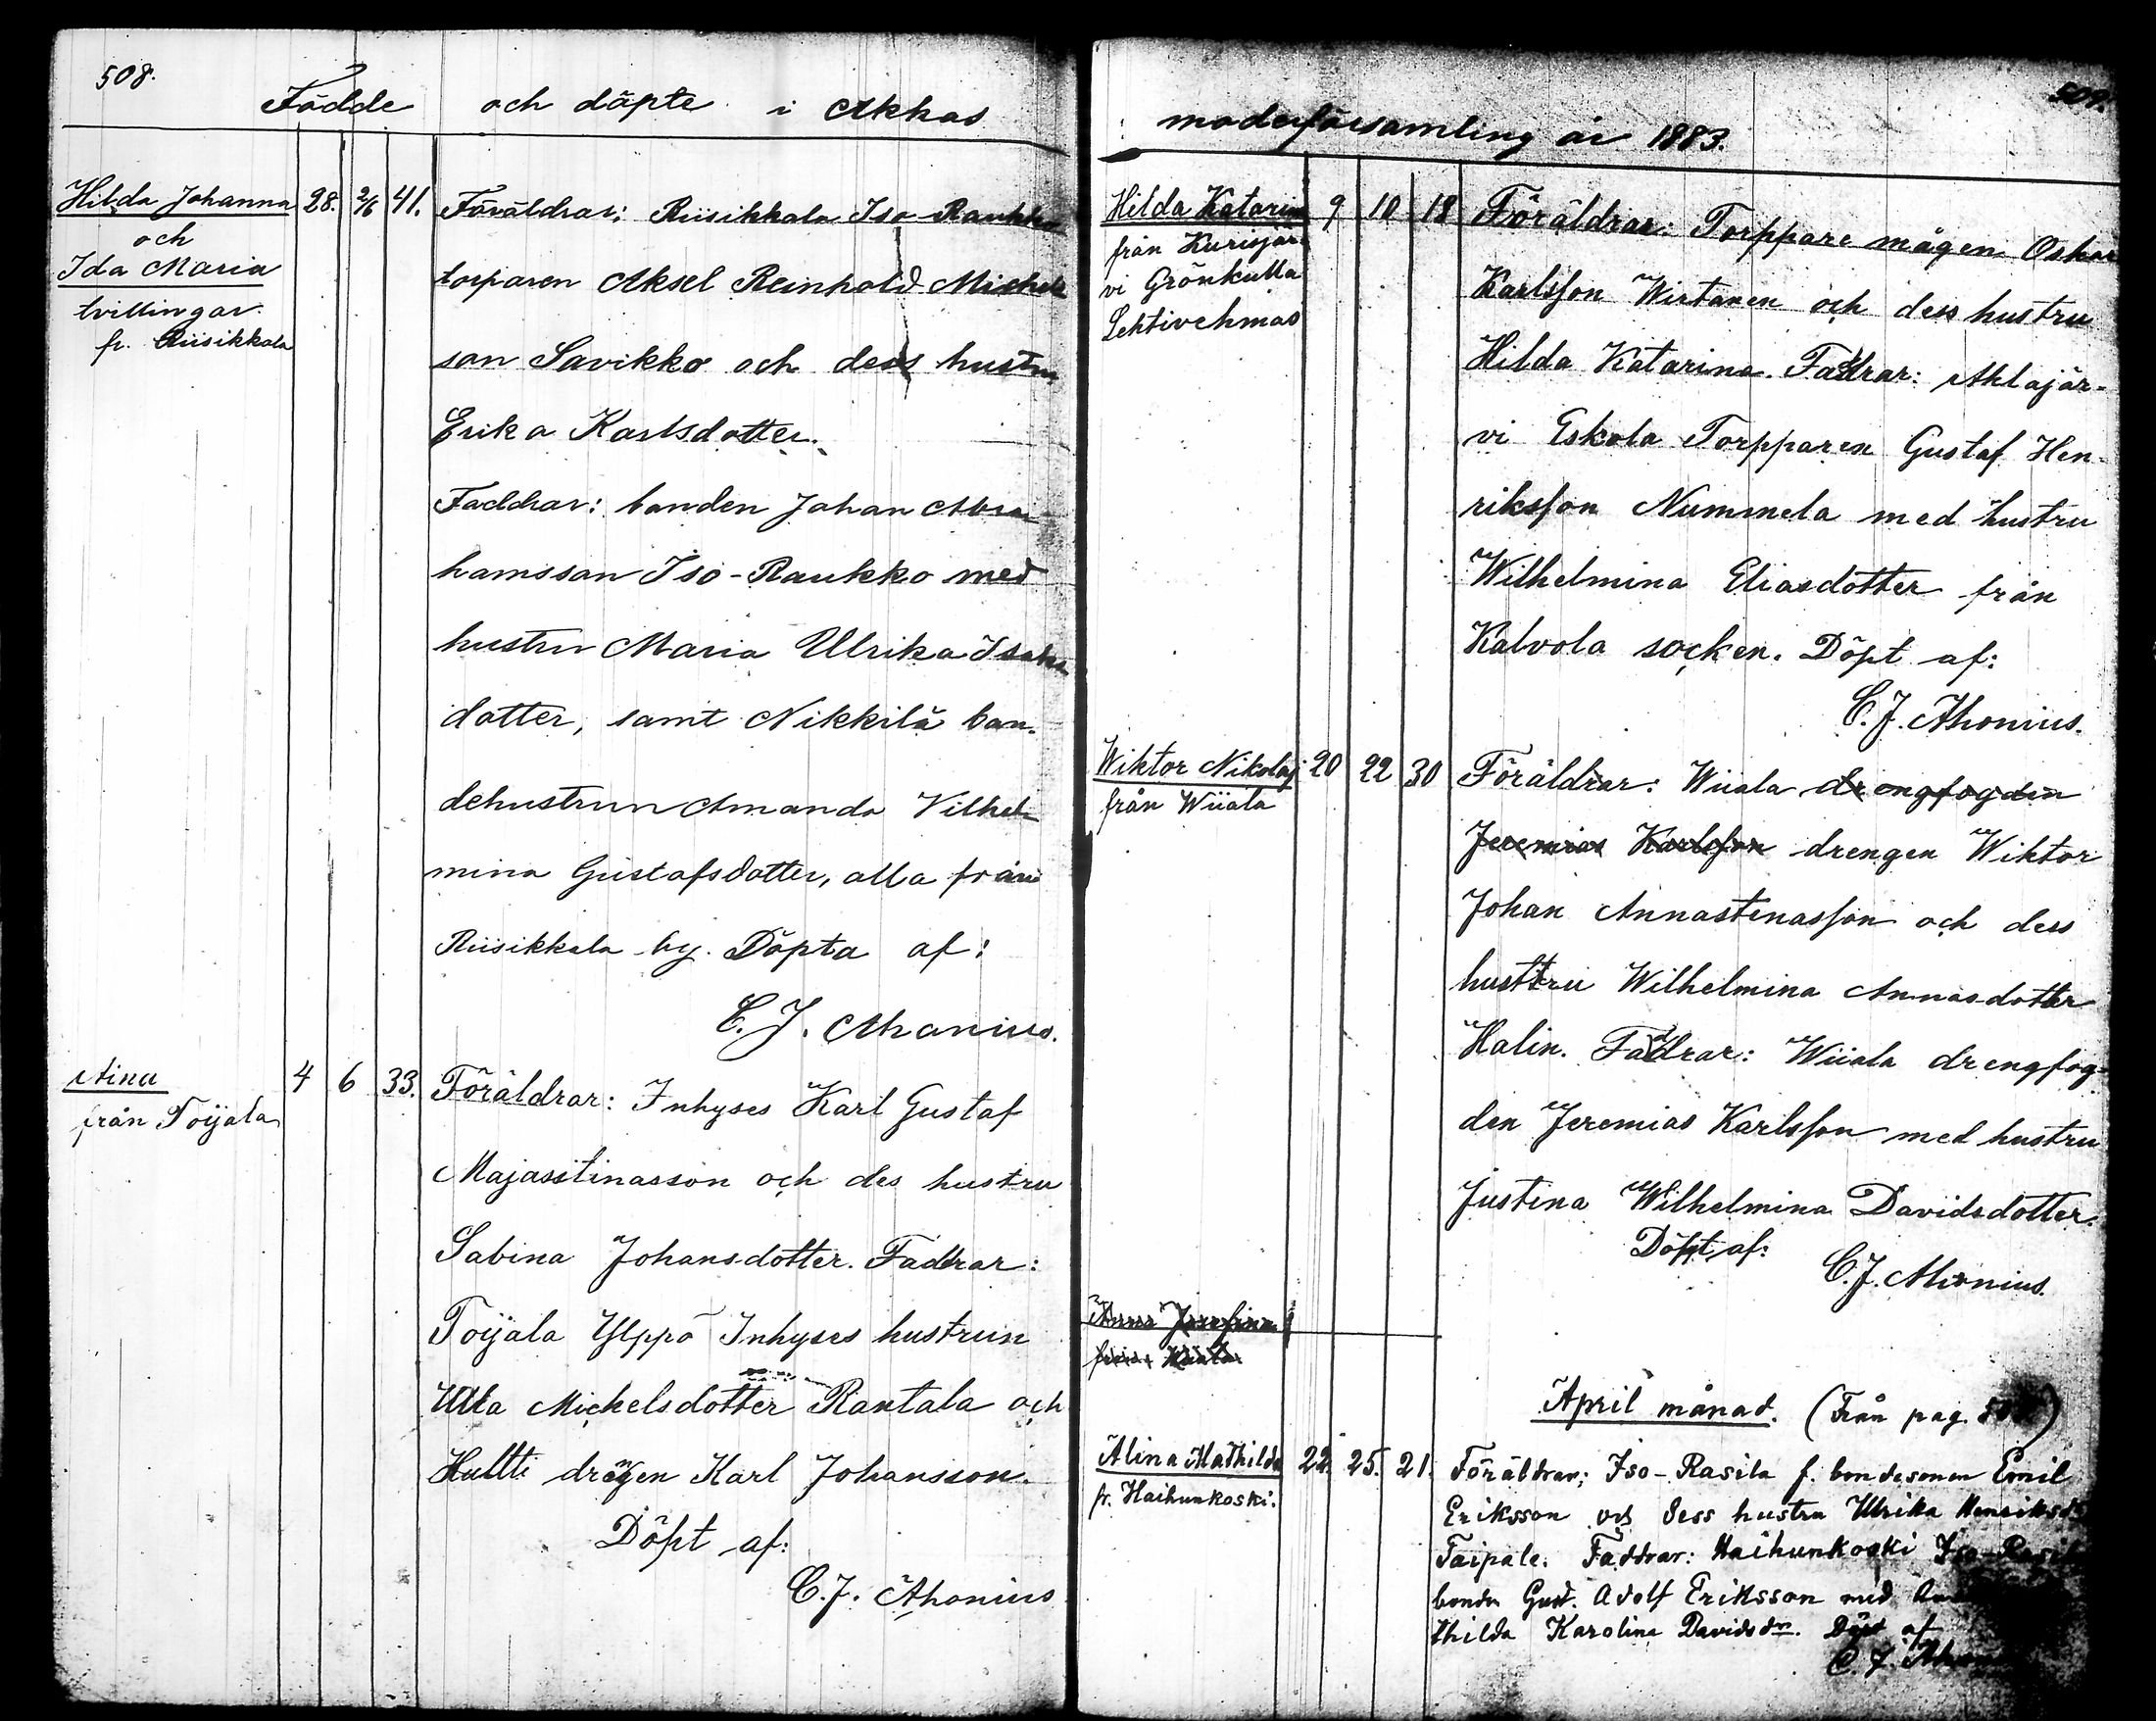 508.
Födde och döpte i Akkas
Hilda Johanna 28. 2/6 41. Föräldrar: Riisikkala Iso-Raukko
och
Ida Maria
tvillingar
fr. Riisikkala
torparen Aksel Reinhold Michels
son Savikko och dess hustru
Erika Karlsdotter.
Faddrar: bonden Johan Abra
hamsson Iso-Raukko med
hustru Maria Ulrika Isaks
dotter, samt Nikkilä bon-
dehustrun Amanda Vilhel
mina Gustafsdotter, alla från
Riisikkala by. Döpta af:
C. J. Ahonius.
Aina 4 6 33. Föräldrar: Inhyses Karl Gustaf
från Toijala
Majasstinasson och des hustru
Sabina Johansdotter. Fadrar:
Toijala Ylppö Inhyses hustrun
Ulla Michelsdotter Rantala och
Hultti drengen Karl Johansson.
Döpt af:
C. J. Ahonius
509.
moderförsamling år 1883.
Hilda Katarina 9 10 18 Föräldrar: Torppare mågen Oskar
från Kurisjär-
vi Grönkulla
Lehtivehmas
Karlsson Wirtanen och dess hustru
Hilda Katarina. Faddrar: Ahlajär-
vi Eskola Torpparen Gustaf Hen-
riksson Nummela med hustru
Wilhelmina Eliasdotter från
Kalvola socken. Döpt af:
C. J. Ahonius.
Wiktor Nikolaj 20 22 30 Föräldrar: Wiiala drengfogden
från Wiiala
Jeremias Karlsson drengen Wiktor
Johan Annastinasson och dess
husttru Wilhelmina Annasdotter
Halin. Faddrar: Wiiala drengfog-
den Jeremias Karlsson med hustru
Justina Wilhelmina Davidsdotter.
Döpt af:
C. J. Ahonius.
Anna Josefina
från Wiiala
April månad. (Från pag.
Alina Mathilda 22. 25. 21. Föräldrar: Iso-Rasila f. bondesonen Emil
fr. Haihunkoski.
Eriksson och dess hustru Ulrika Henriksd
Taipale. Faddrar: Haihunkoski Iso-Rasila
bonden Gust. Adolf Eriksson med
thilda Karolina Davidsdr. Döpt af
C. J. Ahonius